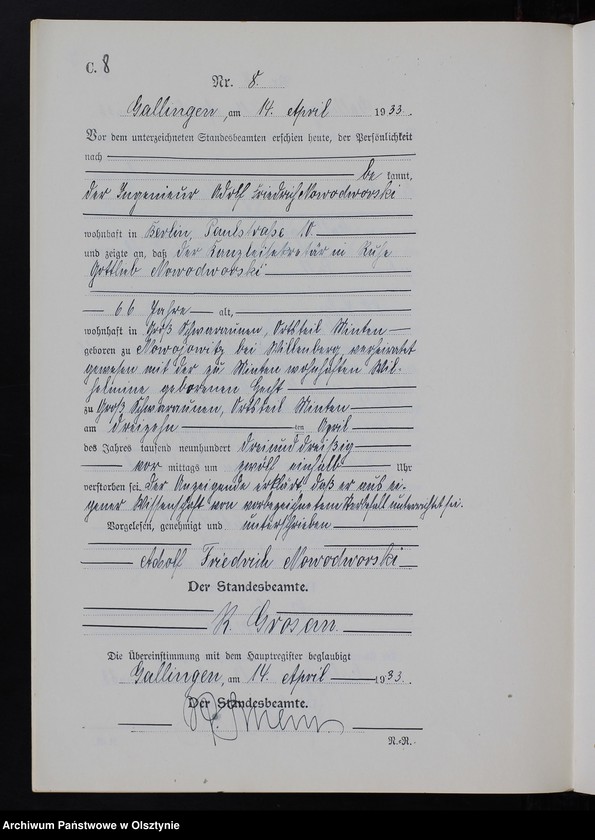 C. 8
Nr. 8.
Gallingen, am 14. April 1933.
Vor dem unterzeichneten Standesbeamten erschien heute, der Persönlichkeit
nach
be kannt,
der Ingenieur Adolf Friedrich Nowodworski
wohnhaft in Berlin, Paulstraße 10.
und zeigte an, daß der Kanzleisekretär in Ruhe
Gottlieb Nowodworski
66 Jahre alt,
wohnhaft in Groß Schwaraunen, Ortsteil Minten
geboren zu bei Willenberg, verheiratet
gewesen mit der zu Minten wohnhaften Wil-
helmine geborenen Hecht
zu Groß Schwaraunen, Ortsteil Minten
am dreizehn ten April
des Jahres tausend neunhundert dreiunddreißig
vor mittags um zwölf einhalb Uhr
verstorben sei. Der Anzeigende erklärt, daß er aus ei-
gener Wissenschaft von vorbezeichnetem Sterbefall unterrichtet sei.
Vorgelesen, genehmigt und unterschrieben
Adolf Friedrich Nowodworski
Der Standesbeamte.
R. Grosan.
Die Übereinstimmung mit dem Hauptregister beglaubigt
Gallingen, am 14. April 1933.
Der Standesbeamte.
R.-R.
Archiwum Państwowe w Olsztynie